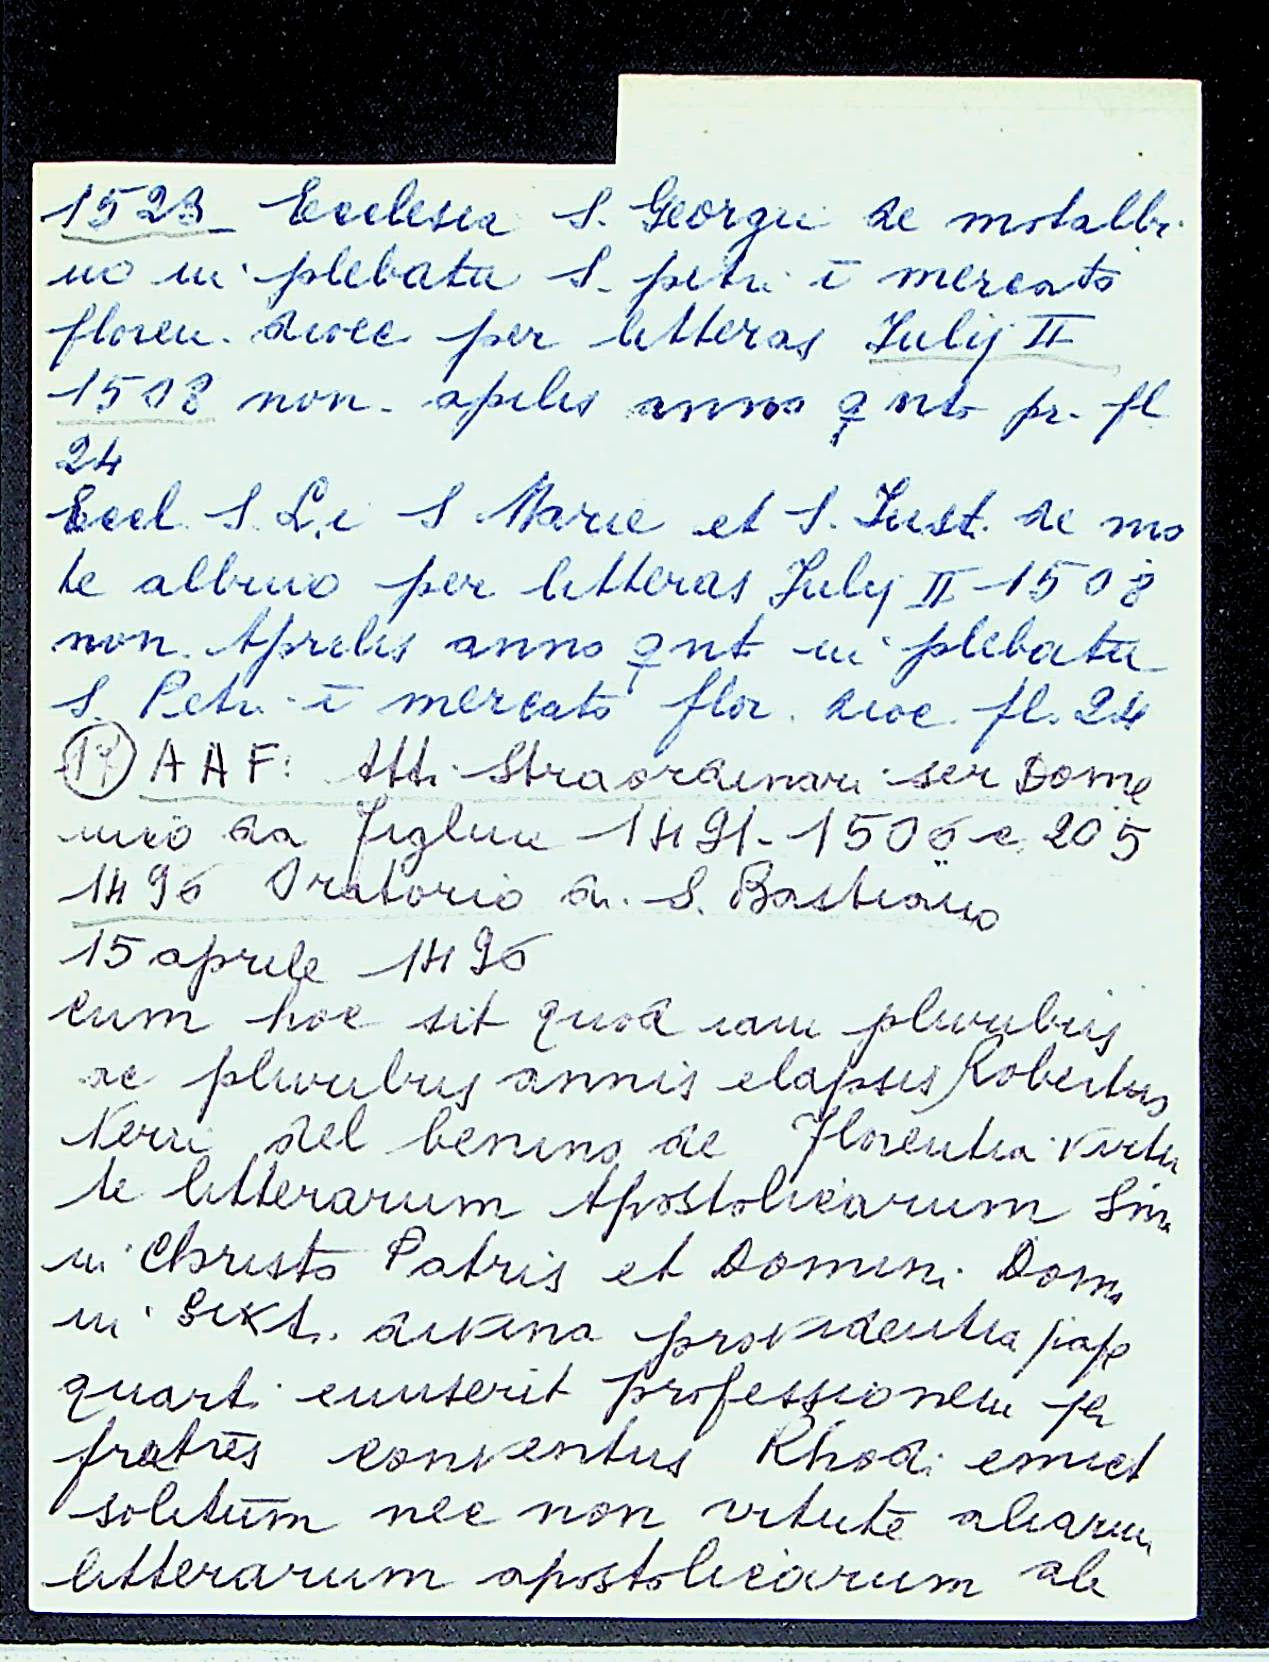 1523 Ecclesia S. Georgii de motalbi
no in plebatu S. petri ī mercato
floren. dioec per litteras Julij II
1508 non. apilis anno qnto pr. fl
24
Eccl. S. L.i S Marie et S. Just. de mo
te albino per litteras Julij II 1508
non. Aprilis anno qnt in plebatu
S. Petri ī mercato flor. dioc. fl. 24
17 AAF: Atti Straordinari ser Dome
nico da Figline 1491-1506 c 205
1496 Oratorio di S. Bastiano
15 aprile 1496
cum hoc sit quod iam pluribus
ac pluribus annis elapsis Robertus
Nerii del benino de Florentia virtu
te litterarum Apostolicarum
in Christo Patris et Domini Dom
ni Sixti divina providentia pape
quarti emiserit professionem per
fratres conventus Rhodi emict
solitum nec non vitute aliarum
litterarum apostolicarum ab